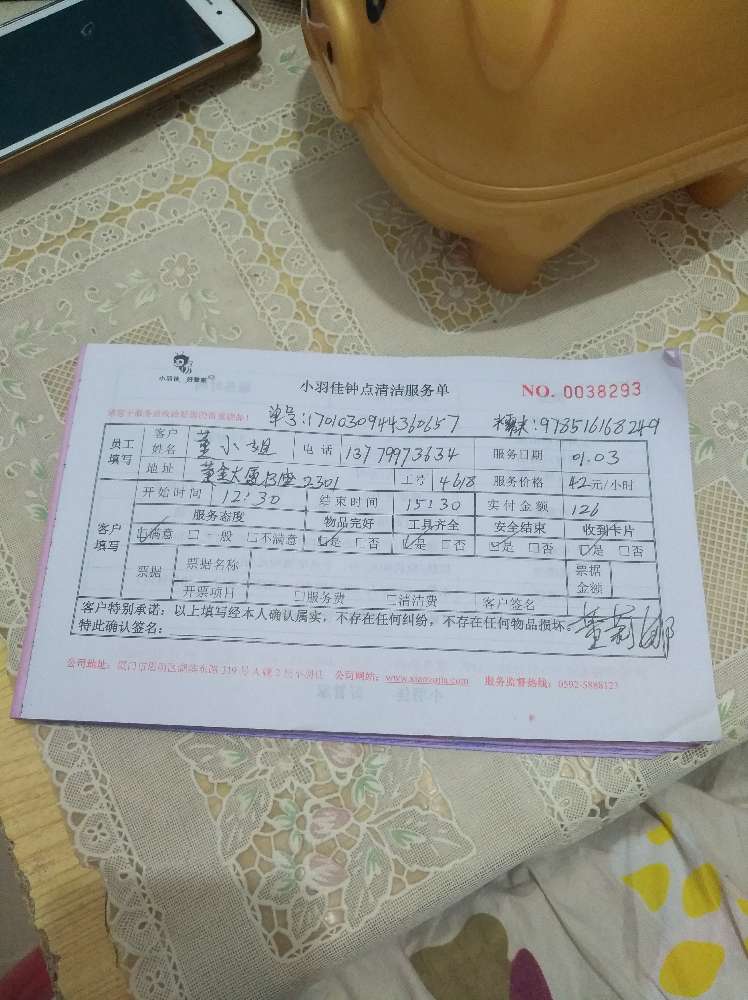 小羽佳 好管家
小羽佳钟点清洁服务单
NO. 0038293
单号:1701030944360657
978516168249
员工填写 客户姓名 董小姐 电话 13779973634 服务日期 01.03
地址 2301 工号 4618 服务价格 42元/小时
客户填写 开始时间 12:30 结束时间 15:30 实付金额 126
服务态度 物品完好 工具齐全 安全结束 收到卡片
☑满意 □一般 □不满意 ☑是 □否 ☑是 □否 ☑是 □否 ☑是 □否
票据 票据名称 票据金额
开票项目 □服务费 □清洁费 客户签名
客户特别承诺:以上填写经本人确认属实,不存在任何纠纷,不存在任何物品损坏。
特此确认签名:
公司网站: 服务监督热线:0592-5888123